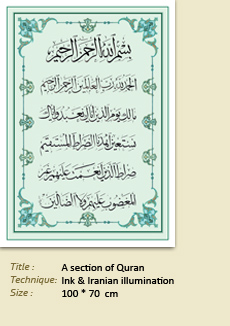 بسم الله الرحمن الرحيم
الحمد لله رب العالمين الرحمن الرحيم
مالك يوم الدين اياك نعبد و اياك
نستعين اهدنا الصراط المستقيم
صراط الذين انعمت عليهم غير
المغضوب عليهم ولا الضالين
Title : A section of Quran
Technique: Ink & Iranian illumination
Size : 100 * 70 cm